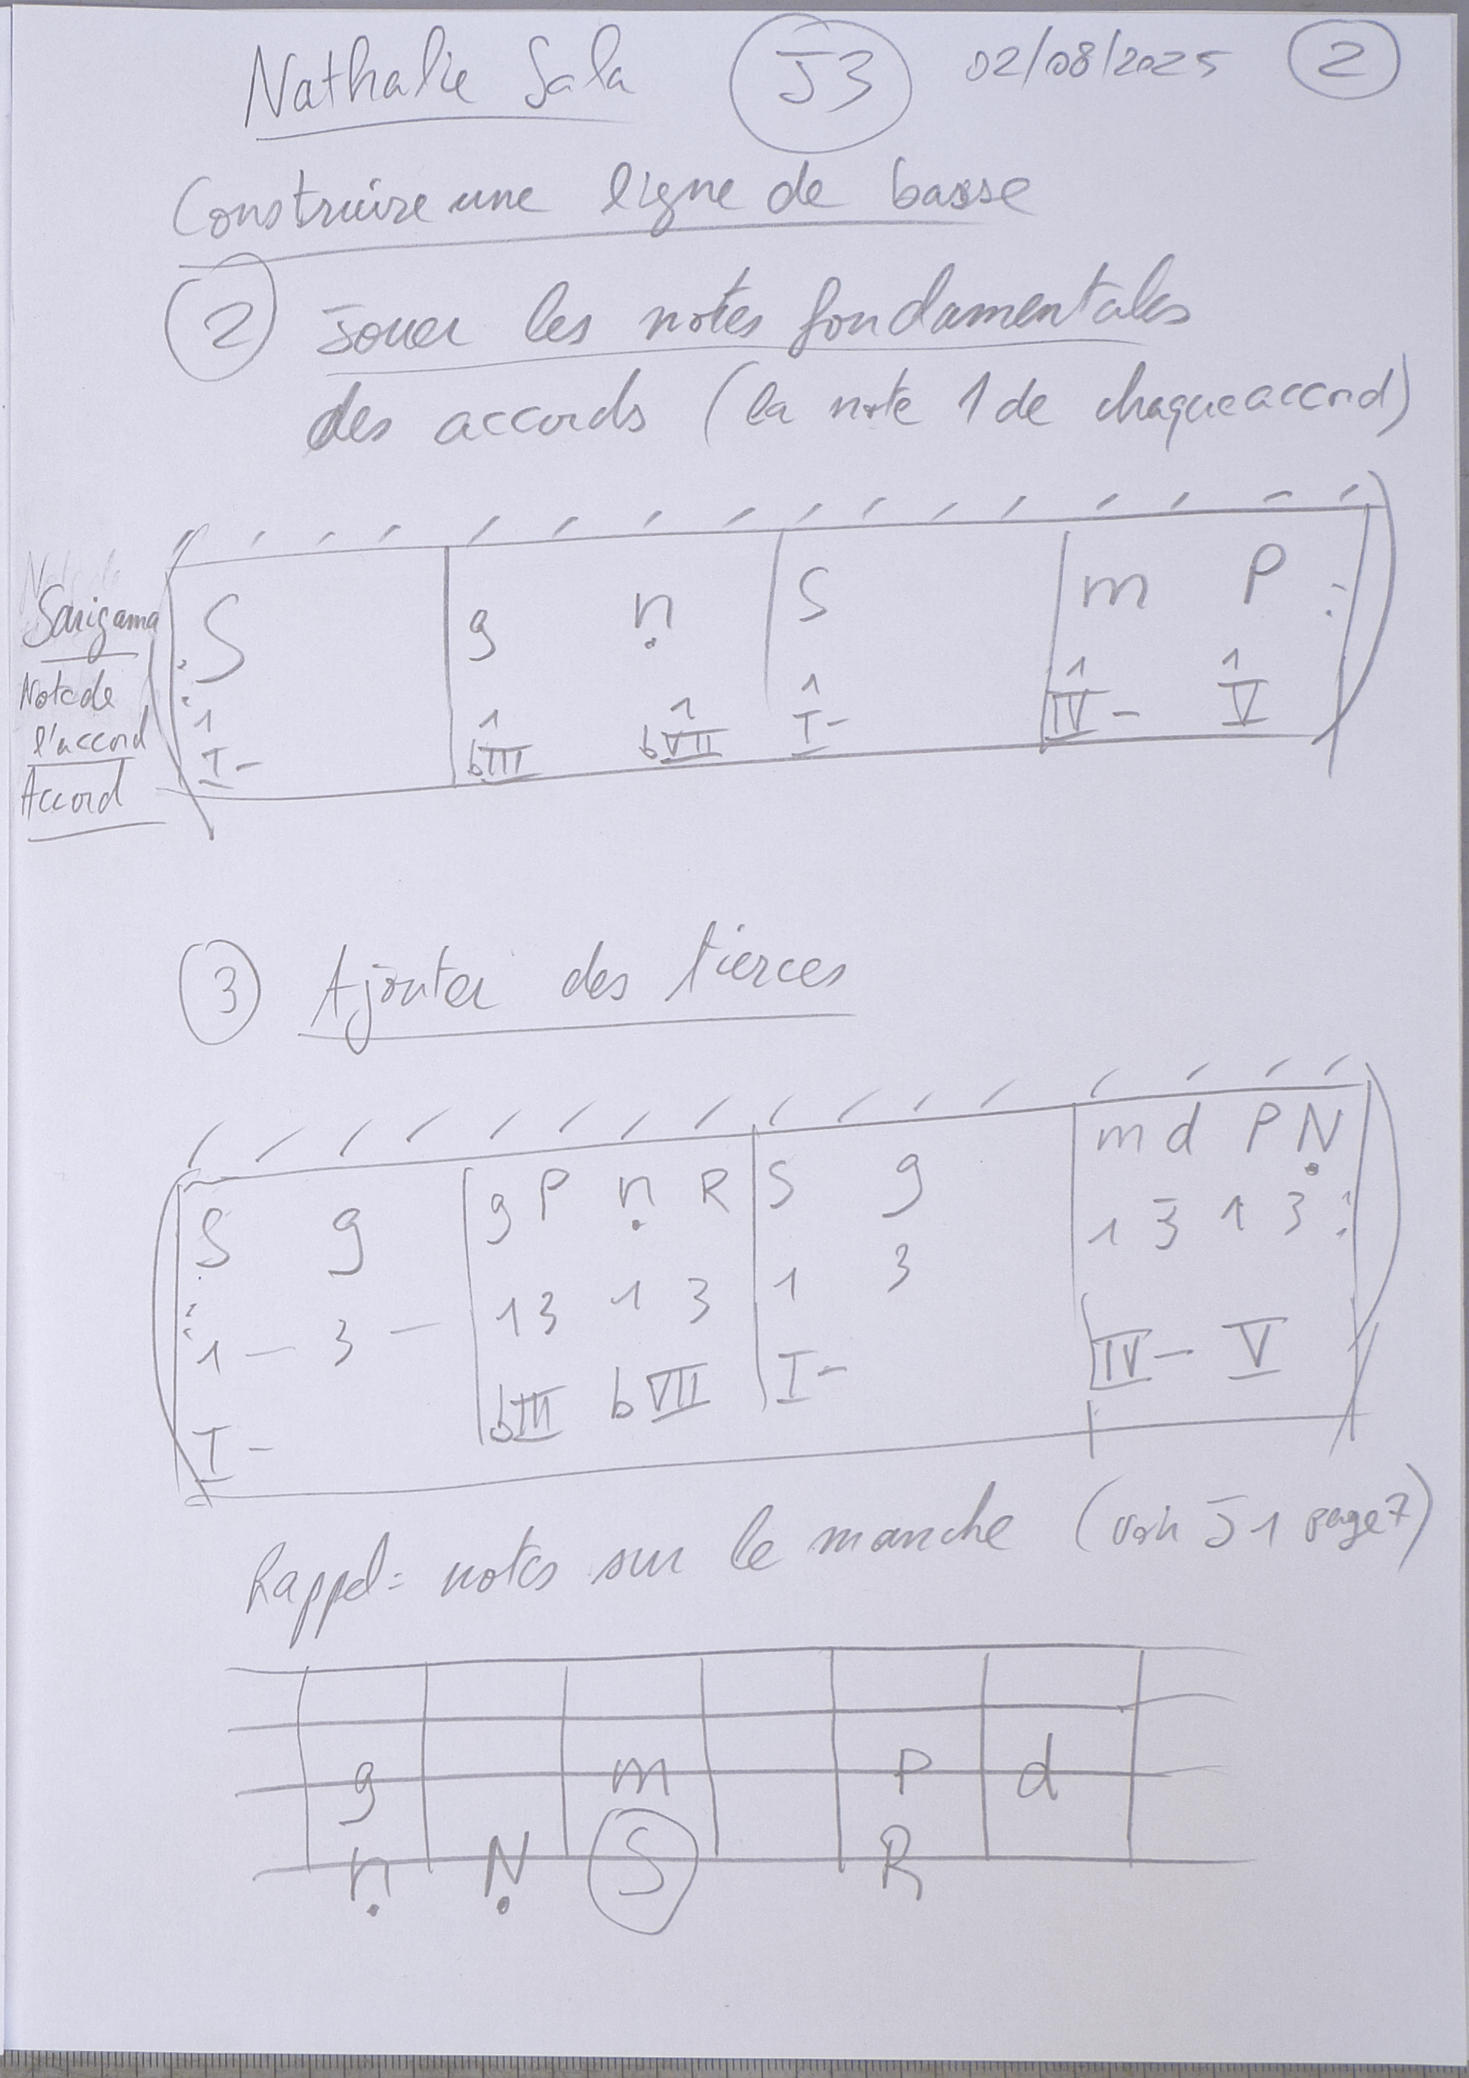 Nathalie Sala J3 02/08/2025 2
Construire une ligne de basse
2 Jouer les notes fondamentales
des accords (la note 1 de chaque accord)
Sarigama S | g ṇ | S | m P :
Note de l'accord 1 | 1 1 | 1 | 1 1
Accord I- | bIII bVII | I- | IV- V
3 Ajouter des tierces
S g | g P ṇ R | S g | m d P Ṇ
: 1 - 3 - | 1 3 1 3 | 1 3 | 1 3 1 3 :
I- | bIII bVII | I- | IV- V
Rappel = notes sur le manche (voir J1 page 7)
g m P d
ṇ Ṇ S R